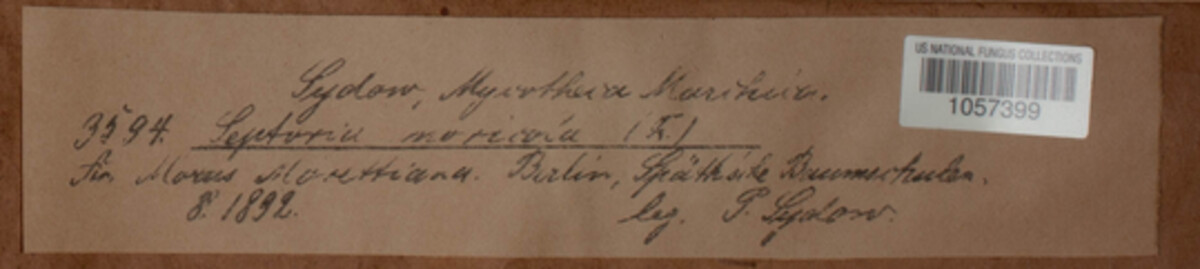 Sydow, Mycotheca Marchica.
US NATIONAL FUNGUS COLLECTIONS
1057399
3594. Septoria moricola (Fr.)
Morus Morettiana. Berlin, Späth'sche Baumschulen.
8. 1892. leg. P. Sydow.